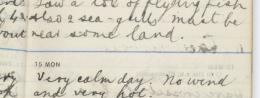 Saw a lot of flying fish
also 2 sea-gulls must be
near some land.
15 MON
Very calm day. No wind
and very hot.